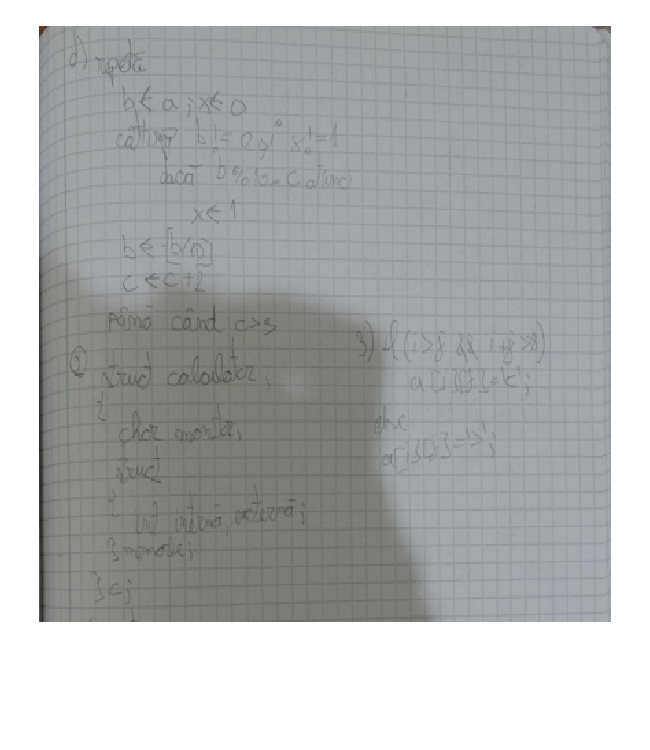 d) repetă
b ← a ; x ← 0
cât timp b != 0 și x != 1
dacă b % 10 = c atunci
x ← 1
b ← [b/10]
c ← c + 2
până când c > 9
② struct calculator,
{
char monitor,
struct
{
int internă, externă ;
} memorie;
} c ;
3) if (i>j && i+j>8)
a[i][j] = '<' ;
else
a[i][j] = '>' ;